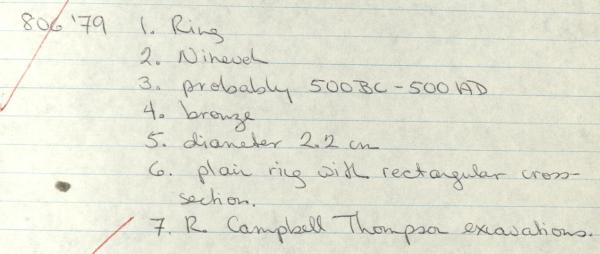 806 '79 1. Ring
2. Nineveh
3. probably 500 BC - 500 AD
4. bronze
5. diameter 2.2 cm
6. plain ring with rectangular cross-
section.
7. R. Campbell Thompson excavations.